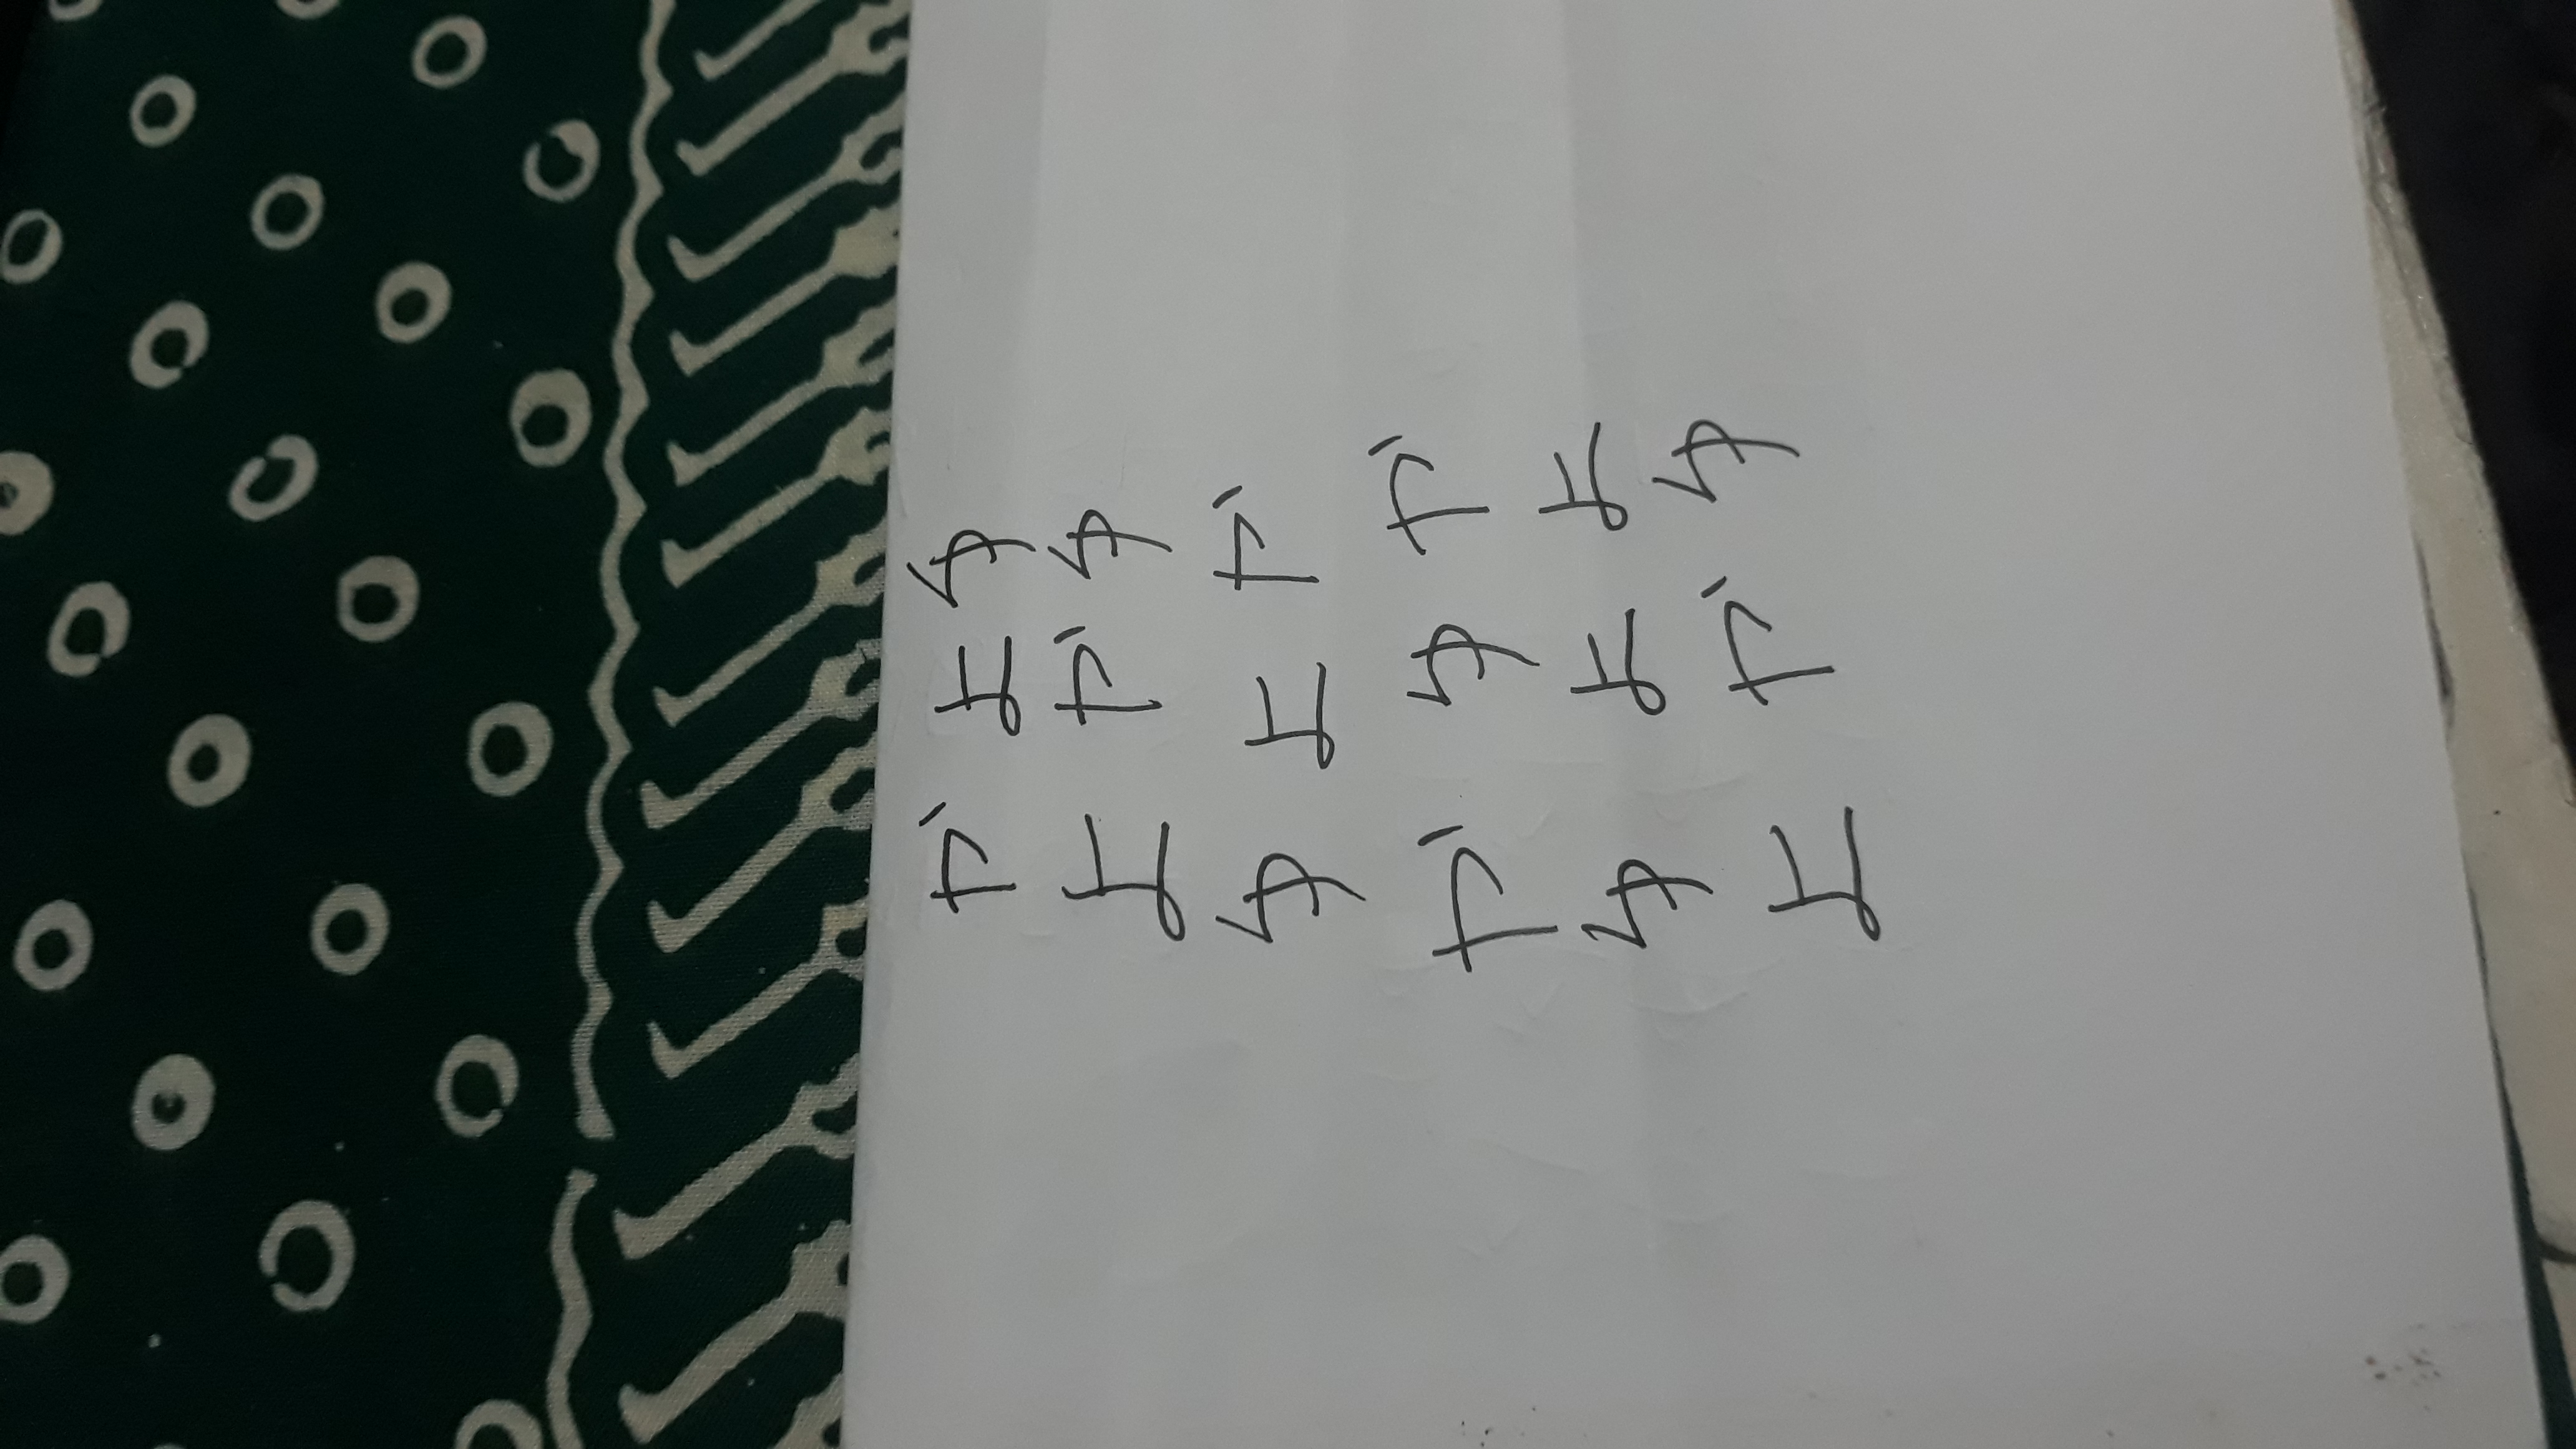 や よ ゆ
よ や ゆ
ゆ よ や
や ゆ や
ゆ よ よ
よ や ゆ